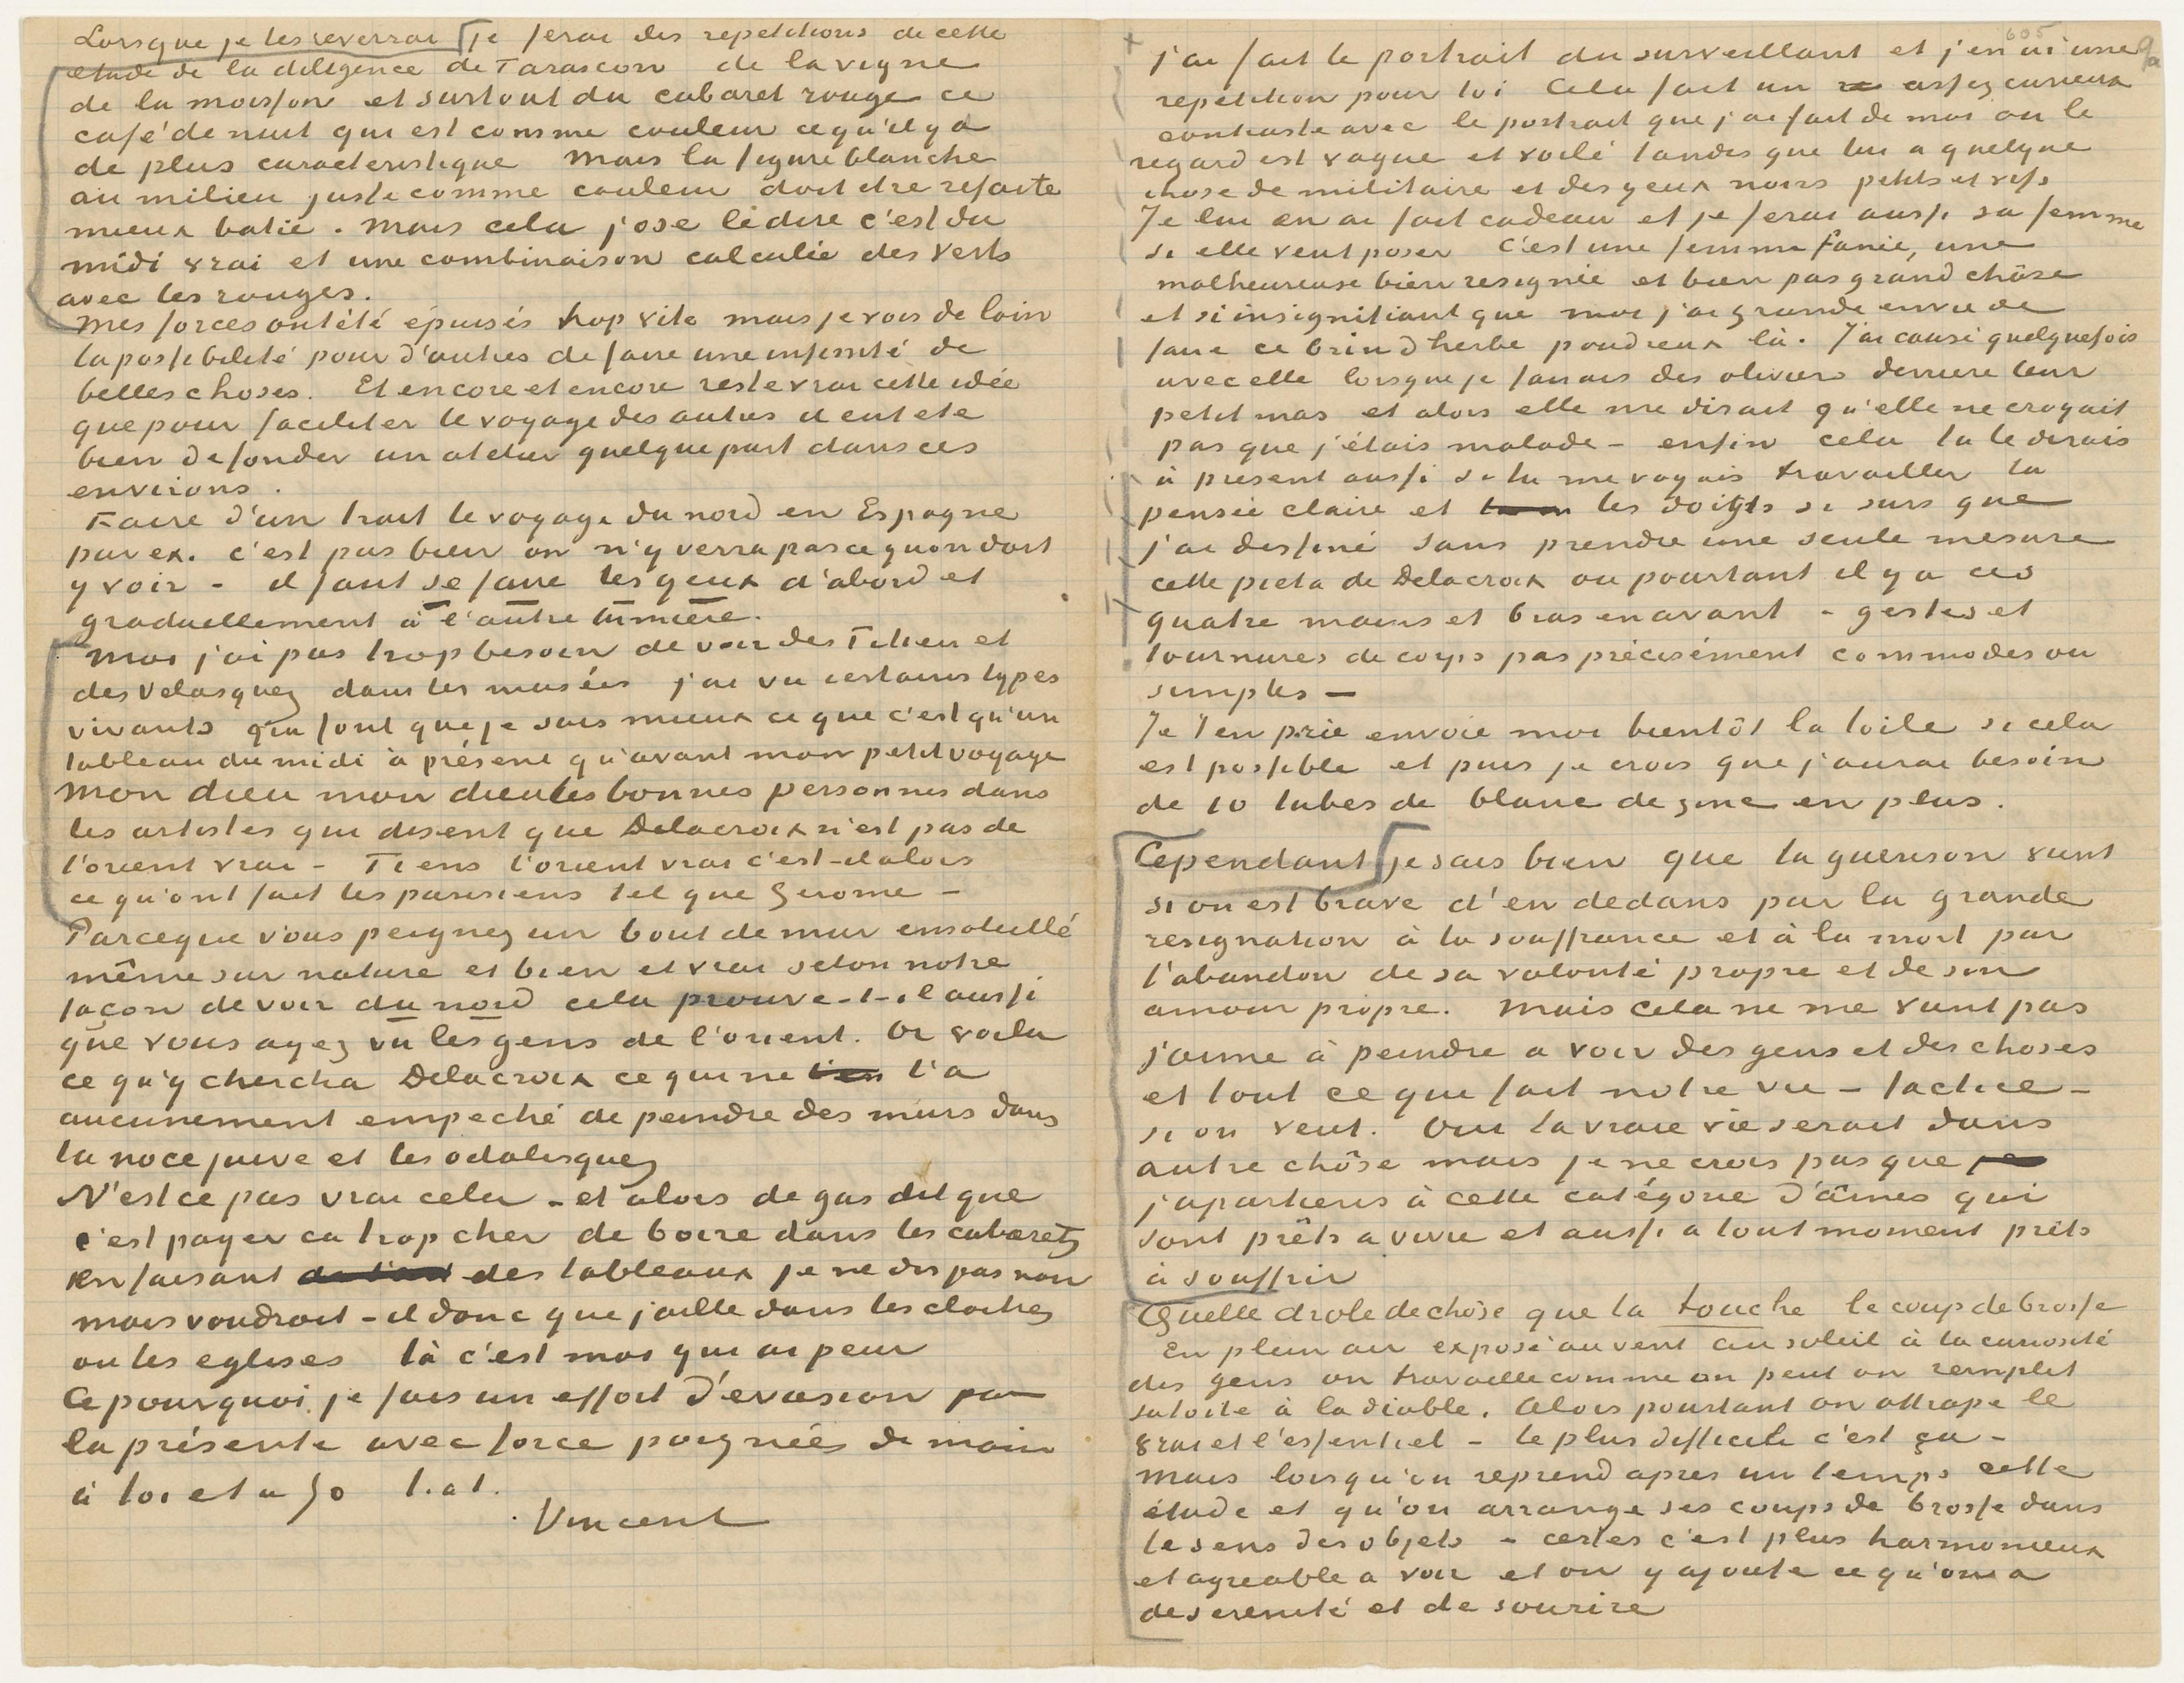 Lorsque je les reverrai je ferai des repetitions de cette
etude de la diligence de Tarascon de la vigne
de la moisson et surtout du cabaret rouge ce
café de nuit qui est comme couleur ce qu'il y a
de plus caracteristique Mais la figure blanche
au milieu juste comme couleur doit etre refaite
mieux batie. Mais cela j'ose le dire c'est du
midi vrai et une combinaison calculée des verts
avec les rouges.
Mes forces ont été épuisés trop vite mais je vois de loin
la possibilité pour d'autres de faire une infinité de
belles choses. Et encore et encore reste vrai cette idée
que pour faciliter le voyage des autres il eut ete
bien de fonder un atelier quelque part dans ces
environs.
Faire d'un trait le voyage du nord en Espagne
par ex. c'est pas bien on n'y verra pas ce quon doit
y voir - il faut se faire les yeux d'abord et
graduellement à l'autre lumiere.
Moi j'ai pas trop besoin de voir des Titien et
des Velasquez dans les musées j'ai vu certains types
vivants qui font que je sais mieux ce que c'est qu'un
tableau du midi à présent qu'avant mon petit voyage
Mon dieu mon dieu les bonnes personnes dans
les artistes qui disent que Delacroix n'est pas de
l'orient vrai - Tiens l'orient vrai c'est-il alors
ce qu'ont fait les parisiens tel que Gerome -
Parceque vous peignez un bout de mur ensoleillé
même sur nature et bien et vrai selon notre
façon de voir du nord cela prouve-t-il aussi
que vous ayez vu les gens de l'orient. Or voila
ce qu'y chercha Delacroix ce qui ne l'a
aucunement empeché de peindre des murs dans
la noce juive et les odalisques
N'est ce pas vrai cela - et alors de gas dit que
c'est payer ca trop cher de boire dans les cabarets
en faisant des tableaux je ne dis pas non
mais voudrait-il donc que j'aille dans les cloitres
ou les eglises là c'est moi qui ai peur
Ce pourquoi je fais un effort d'evasion par
la présente avec force poignées de main
à toi et a Jo t.a t.
Vincent
605
9/a
j'ai fait le portrait du surveillant et j'en ai une
repetition pour toi Cela fait un assez curieux
contraste avec le portrait que j'ai fait de moi ou le
regard est vague et voilé tandis que lui a quelque
chose de militaire et des yeux noirs petits et vifs
Je lui en ai fait cadeau et je ferai aussi sa femme
si elle veut poser C'est une femme fanée, une
malheureuse bien resignée et bien pas grand chôse
et si insignifiant que moi j'ai grande envie de
faire ce brin d'herbe poudreux là. J'ai causé quelquefois
avec elle lorsque je faisais des oliviers derriere leur
petit mas et alors elle me disait qu'elle ne croyait
pas que j'étais malade - enfin cela tu le dirais
à present aussi si tu me voyais travailler la
pensée claire et les doigts si surs que
j'ai dessiné sans prendre une seule mesure
cette pieta de Delacroix ou pourtant il y a ces
quatre mains et bras en avant - gestes et
tournures de corps pas précisément commodes ou
simples -
Je t'en prie envoie moi bientôt la toile si cela
est possible et puis je crois que j'aurai besoin
de 10 tubes de blanc de zinc en plus.
Cependant je sais bien que la guerison vient
si on est brave d'en dedans par la grande
resignation à la souffrance et à la mort par
l'abandon de sa volonté propre et de son
amour propre. Mais cela ne me vient pas
j'aime à peindre a voir des gens et des choses
et tout ce que fait notre vie - factice -
si on veut. Oui la vraie vie serait dans
autre chôse mais je ne crois pas que
j'apartiens à cette catégorie d'âmes qui
sont prêts a vivre et aussi a tout moment prêts
à souffrir
Quelle drole de chôse que la touche le coup de brosse
En plein air exposé au vent au soleil à la curiosité
des gens on travaille comme on peut on remplit
sa toile à la diable. Alors pourtant on attrape le
vrai et l'essentiel - le plus difficile c'est ça -
Mais lorsqu'on reprend apres un temps cette
étude et qu'on arrange ses coups de brosse dans
le sens des objets - certes c'est plus harmonieux
et agreable a voir et on y ajoute ce qu'on a
de serenité et de sourire